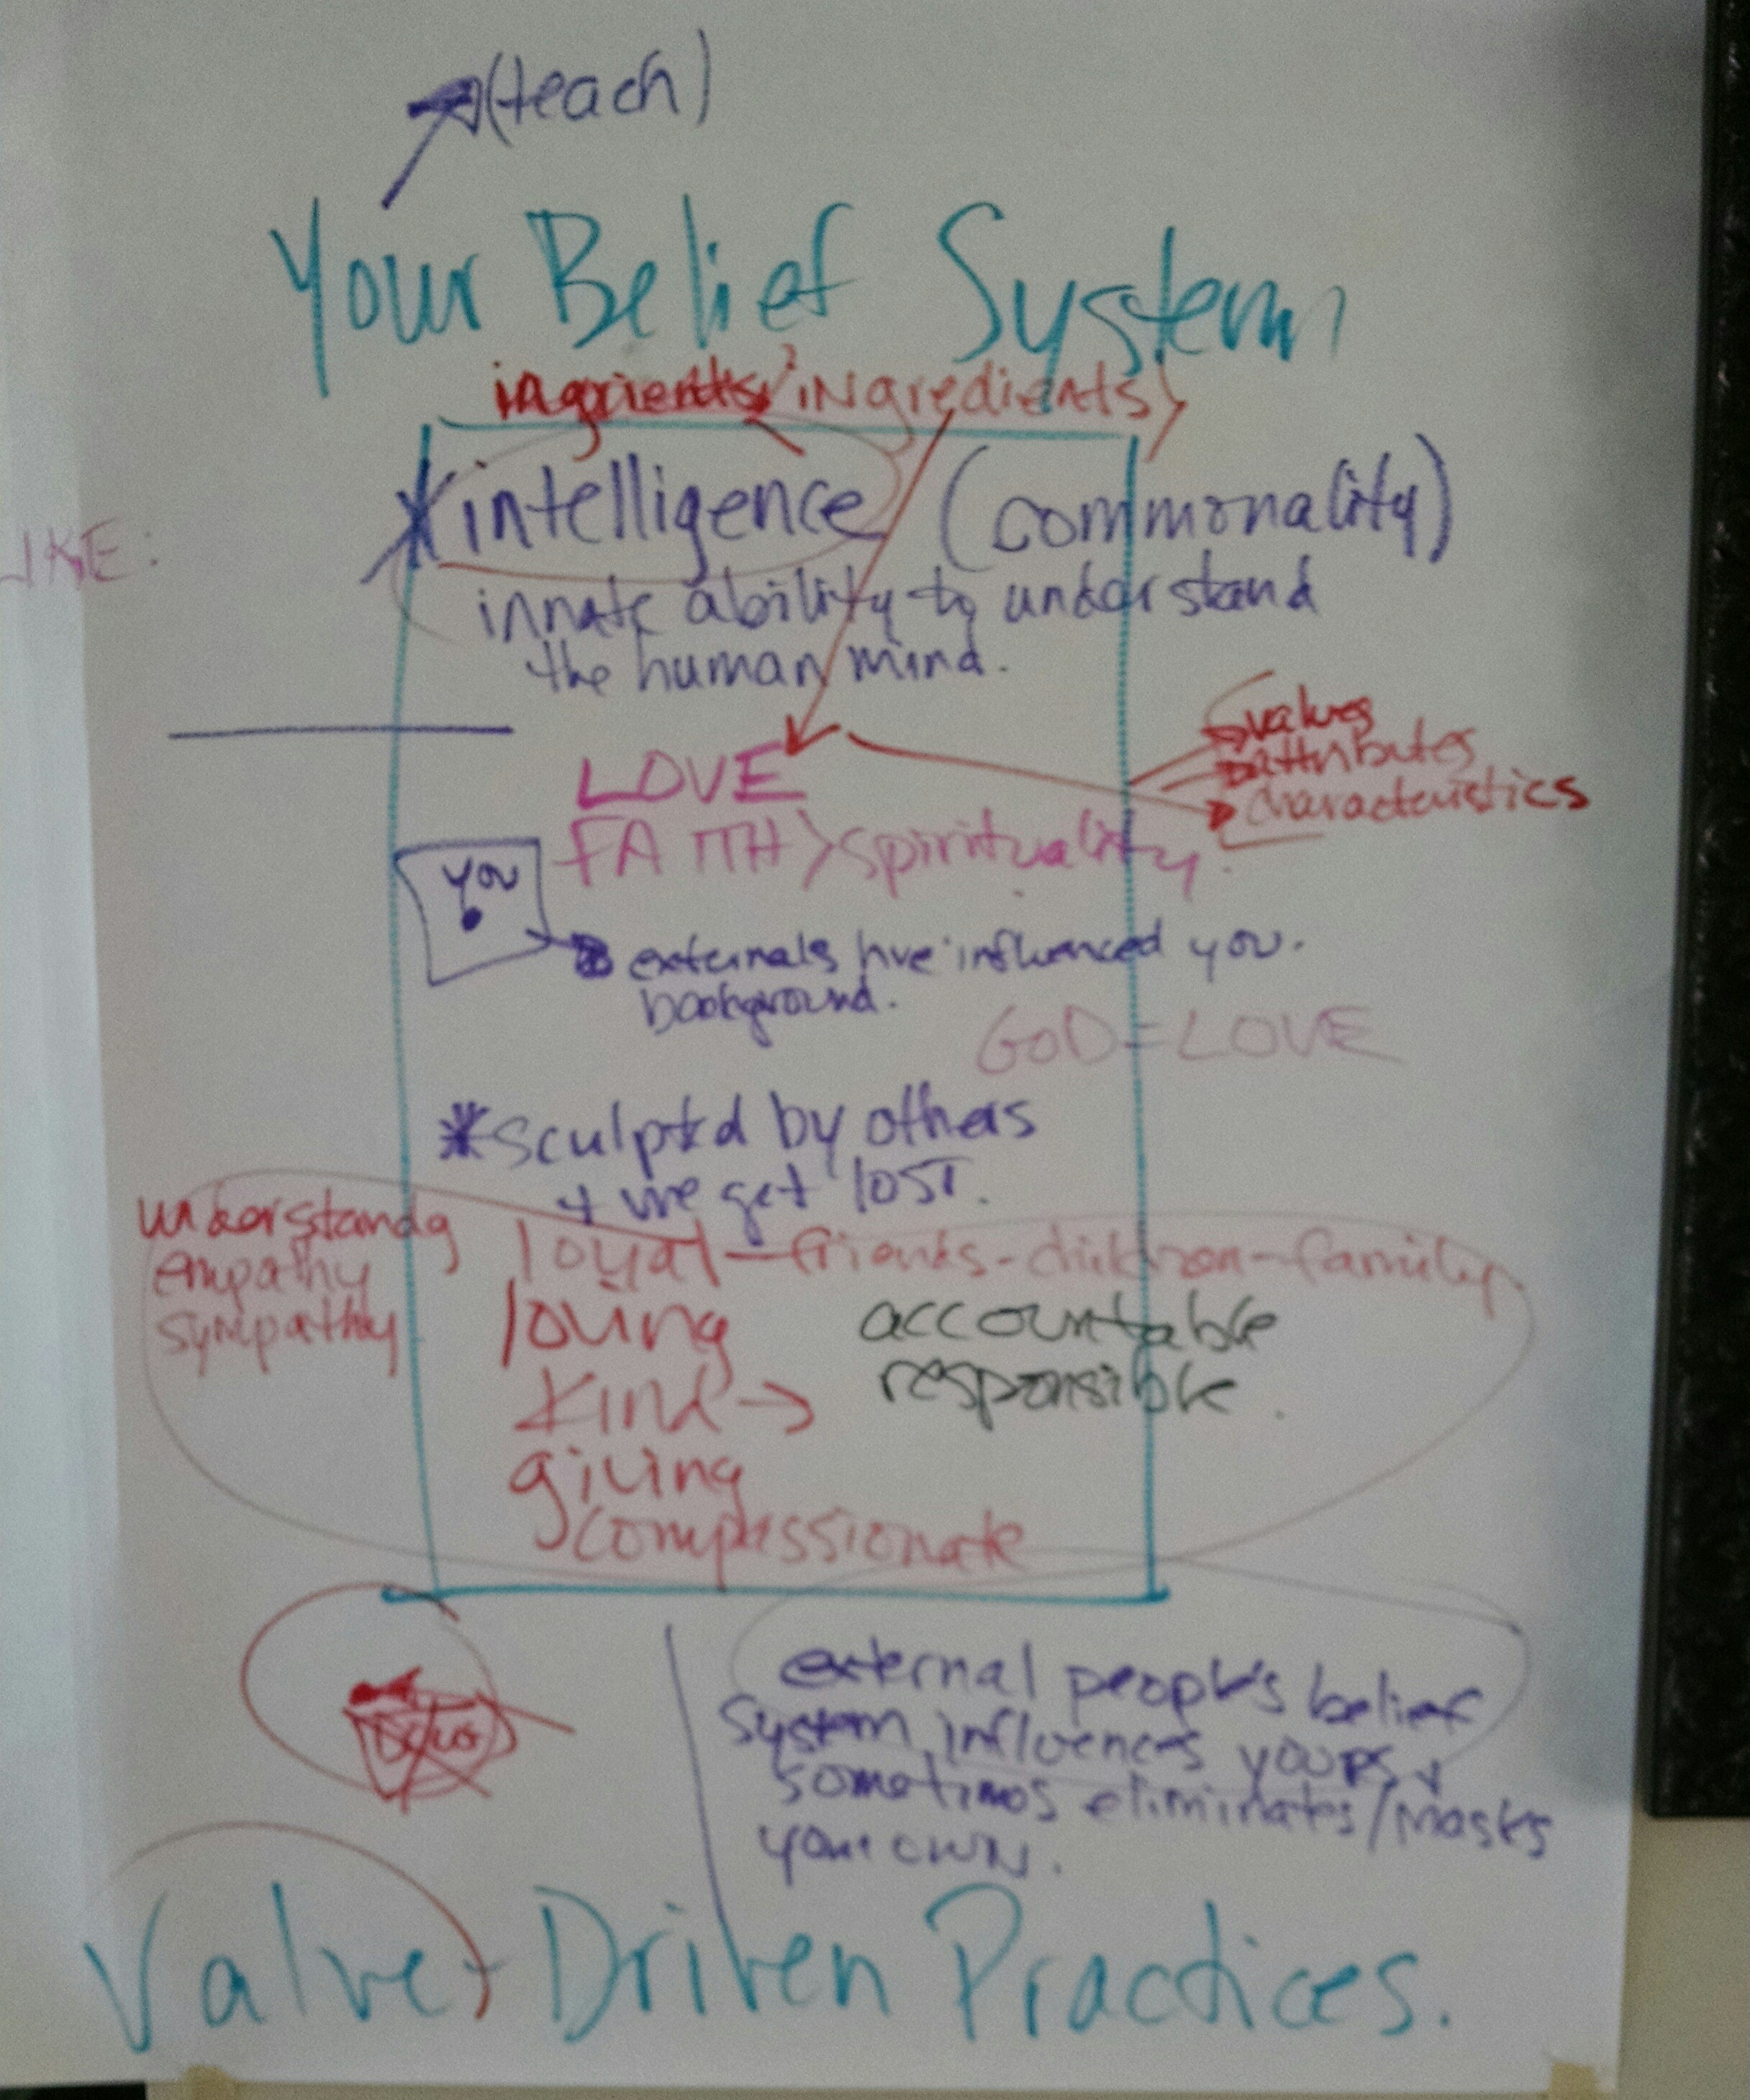 (teach)
Your Belief System
ingrients/ingredients
*intelligence (commonality)
innate ability to understand
the human mind.
IKE:
values
attributes
characteristics
LOVE
FAITH > spirituality.
you
externals hve influenced you.
background.
GOD = LOVE
*sculptd by others
+ we get lost.
understandg
empathy
sympathy
loyal - friends - children - family
loving
kind →
giving
compassionate
accountable
responsible.
external people's belief
system influences yours +
sometimes eliminates/masks
your own.
Value-Driven Practices.